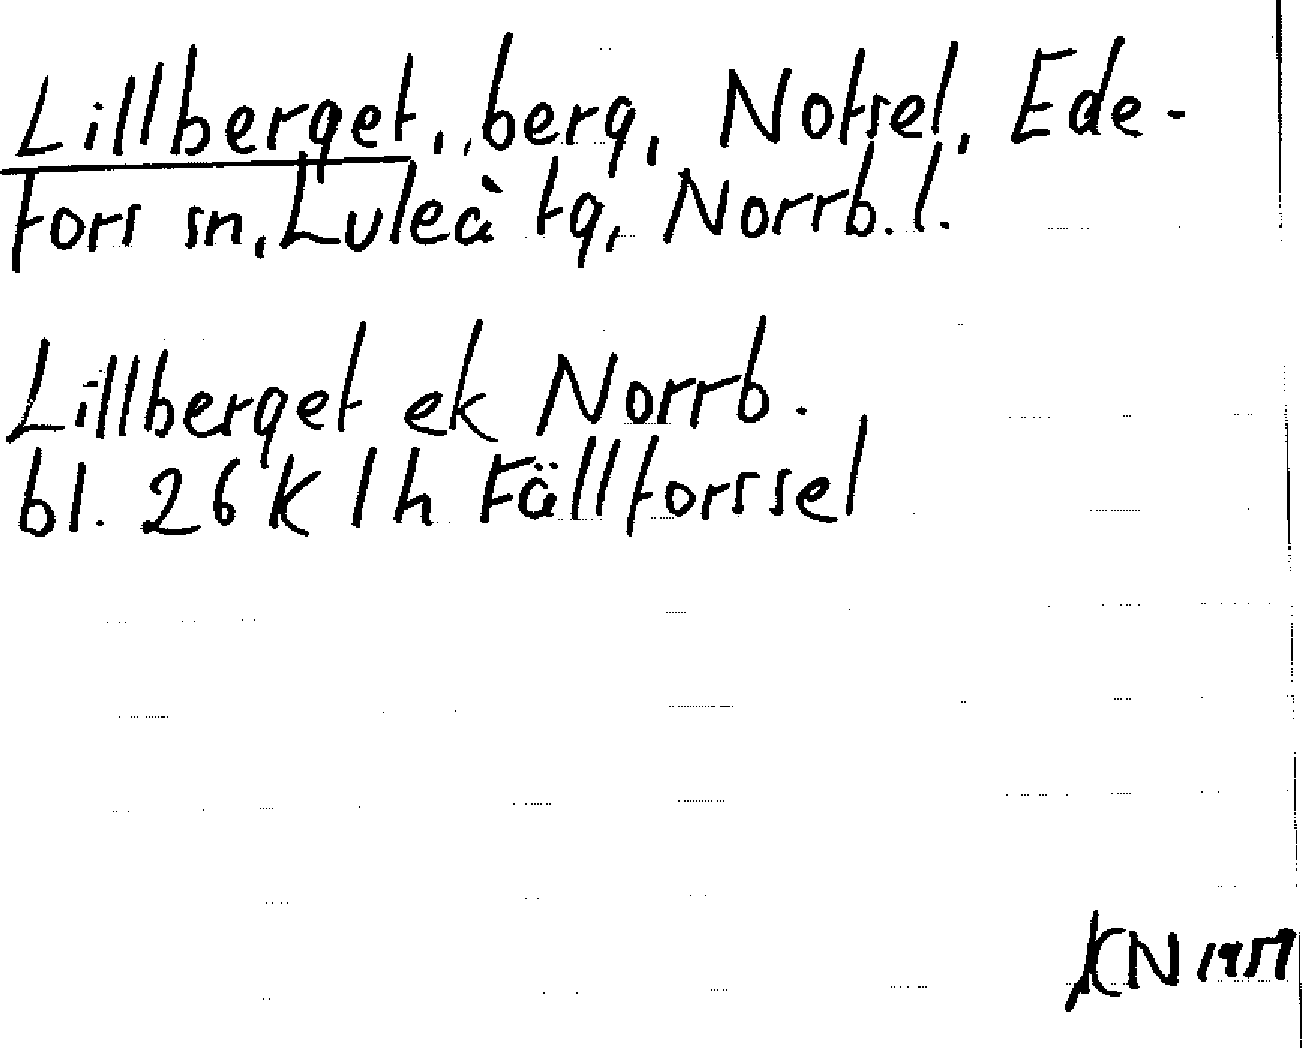 Lillberget, berg, Notsel, Ede-
fors sn, Luleå tg, Norrb. l.
Lillberget ek Norrb.
bl. 26 K 1 h Fällforssel
KN